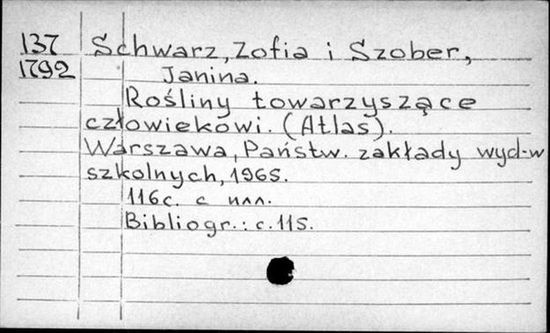 137 Schwarz, Zofia i Szober,
1792 Janina.
Rośliny towarzyszące
człowiekowi. (Atlas).
Warszawa, Państw. zakłady wyd-w
szkolnych, 1965.
116с. с илл.
Bibliogr.: с. 115.